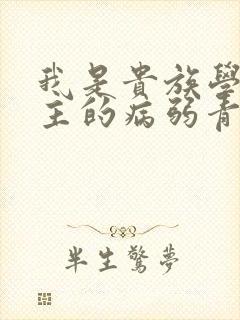 我是貴族學
主的病弱青
半生驚夢